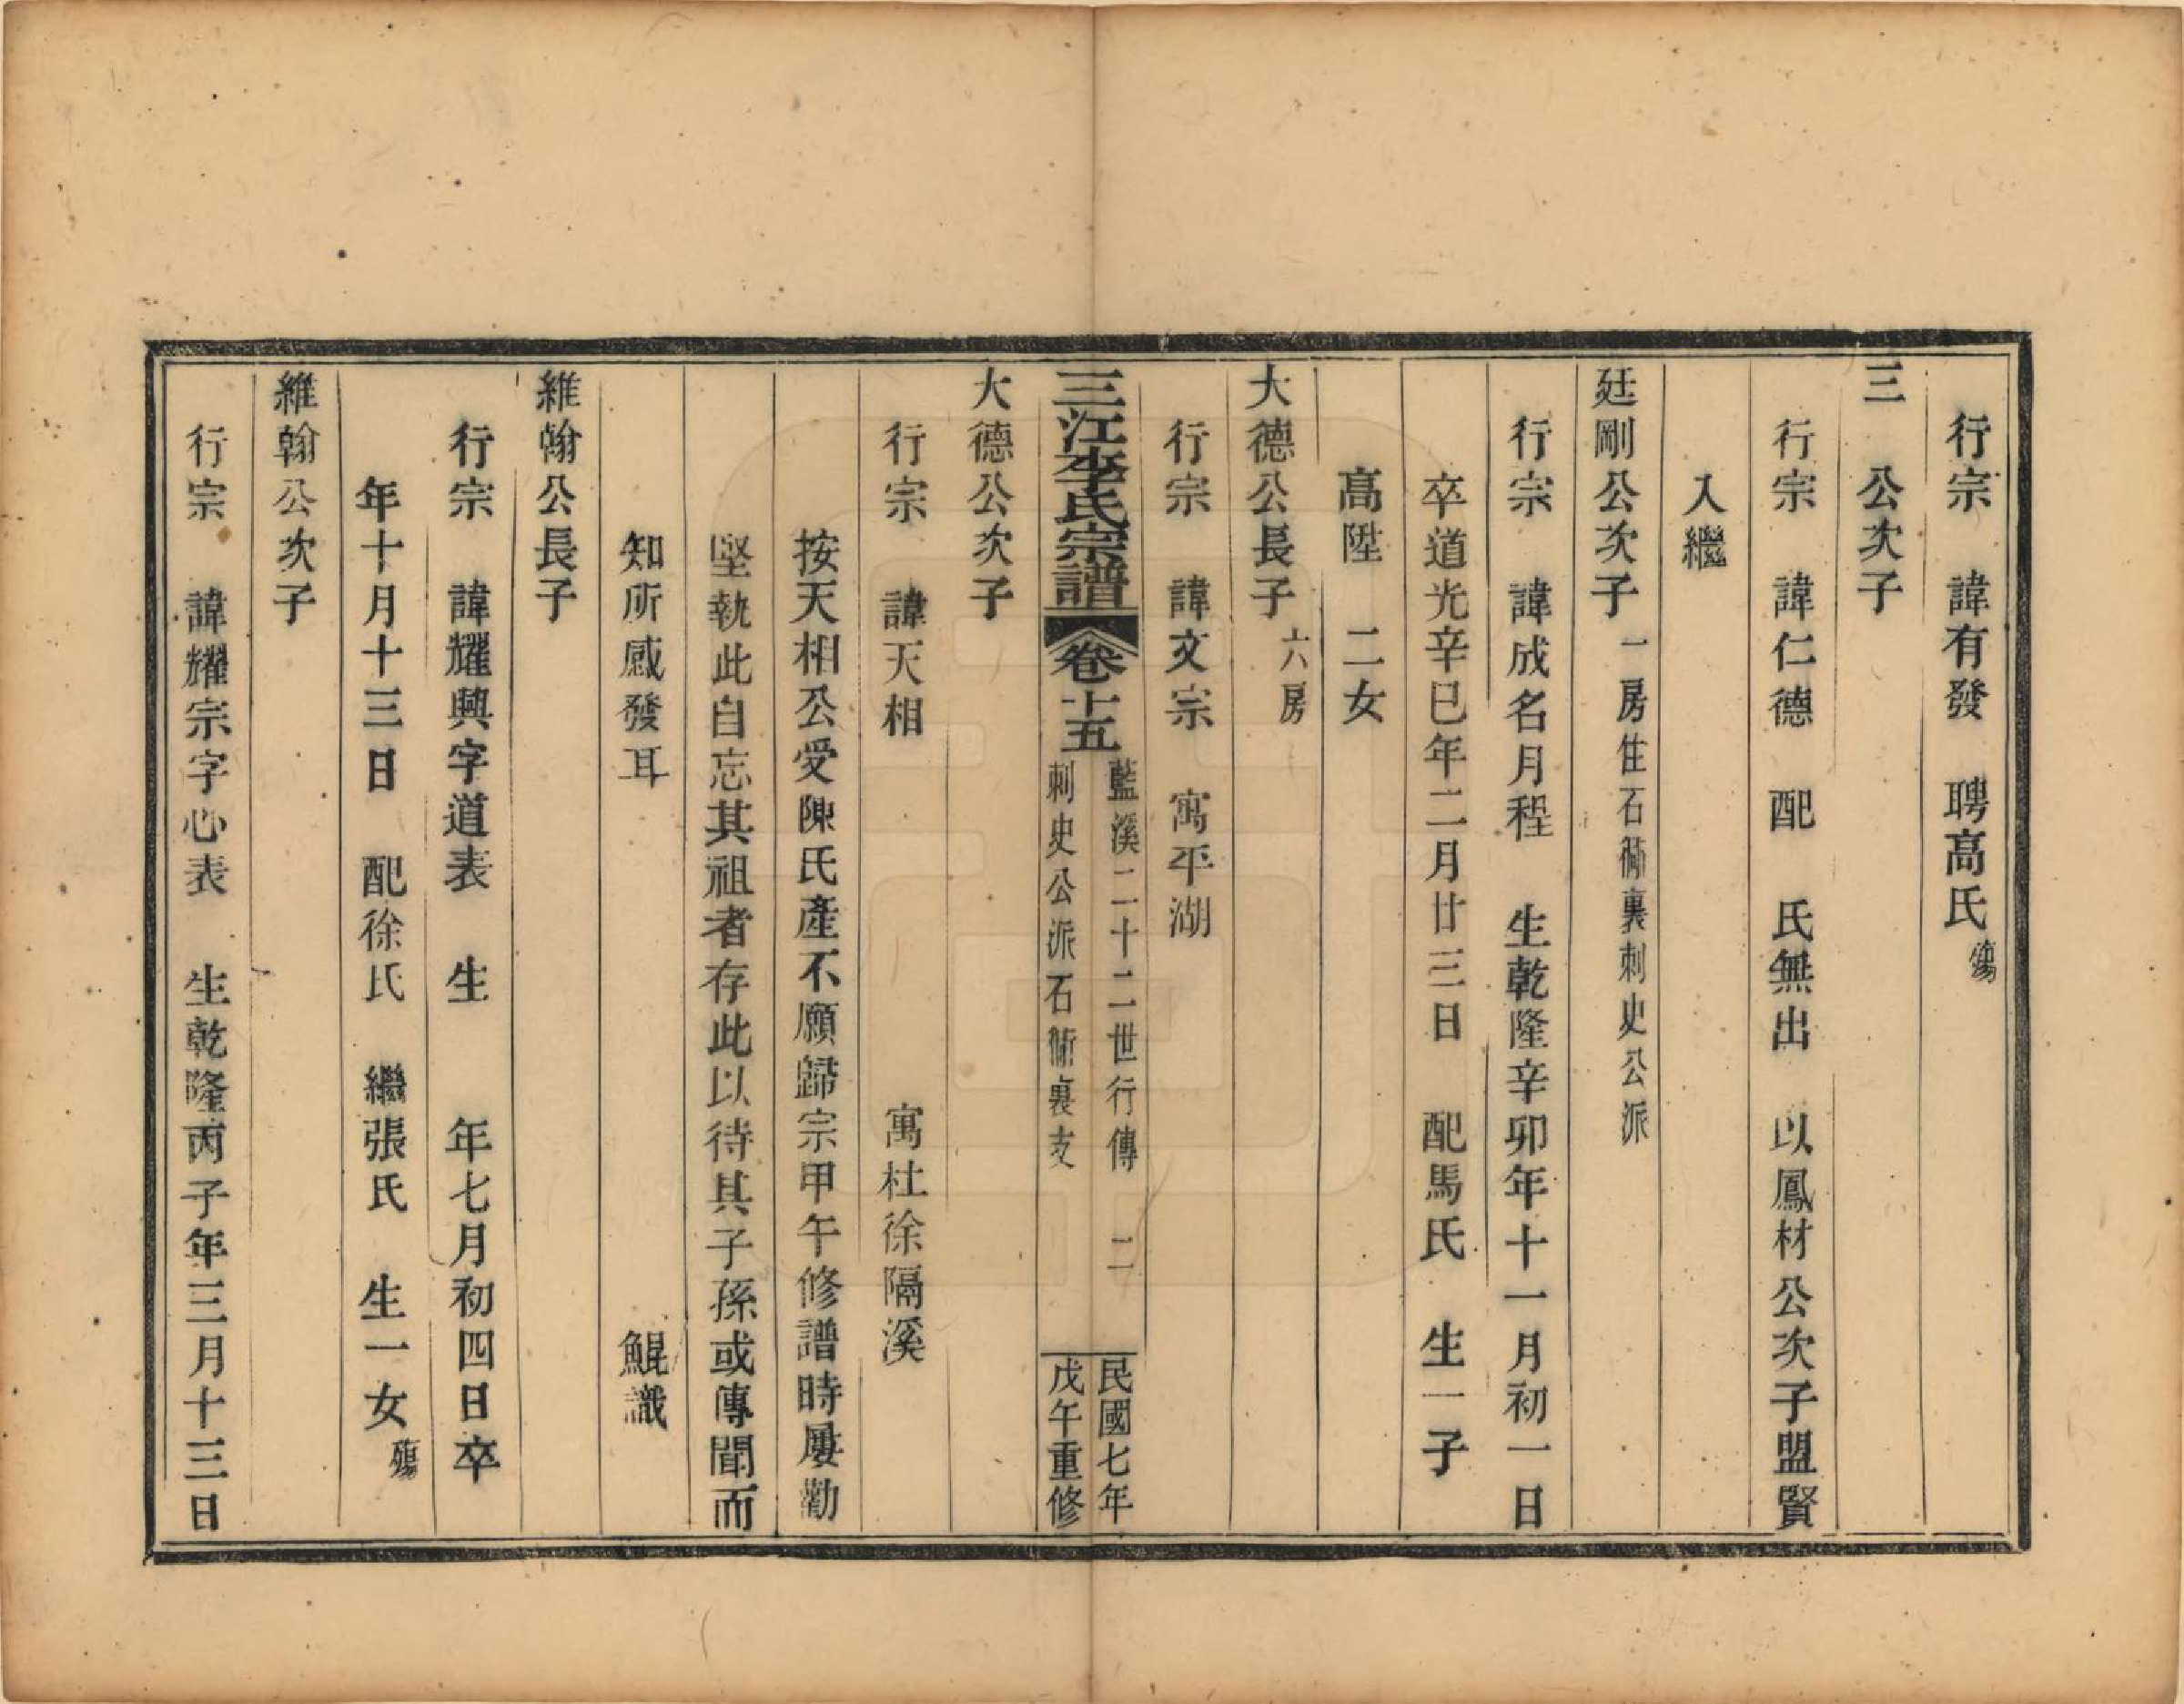 行宗　諱有發　聘高氏殤
三　公次子
行宗　諱仁德　配　氏無出　以鳳材公次子盟賢
入繼
廷剛公次子一房住石衕裏刺史公派
行宗　諱成名月程　生乾隆辛卯年十一月初一日
卒道光辛巳年二月廿三日　配馬氏　生一子
高陞　二女
大德公長子六房
行宗　諱文宗　寓平湖
三江李氏宗譜
卷十五
藍溪二十二世行傳　二
刺史公派石衕裏支
民國七年
戊午重修
大德公次子
行宗　諱天相　寓杜徐隔溪
按天相公受陳氏產不願歸宗甲午修譜時屢勸
堅執此自忘其祖者存此以待其子孫或傳聞而
知所感發耳　鯤識
維翰公長子
行宗　諱耀興字道表　生　年七月初四日卒
年十月十三日　配徐氏　繼張氏　生一女殤
維翰公次子
行宗　諱耀宗字心表　生乾隆丙子年三月十三日